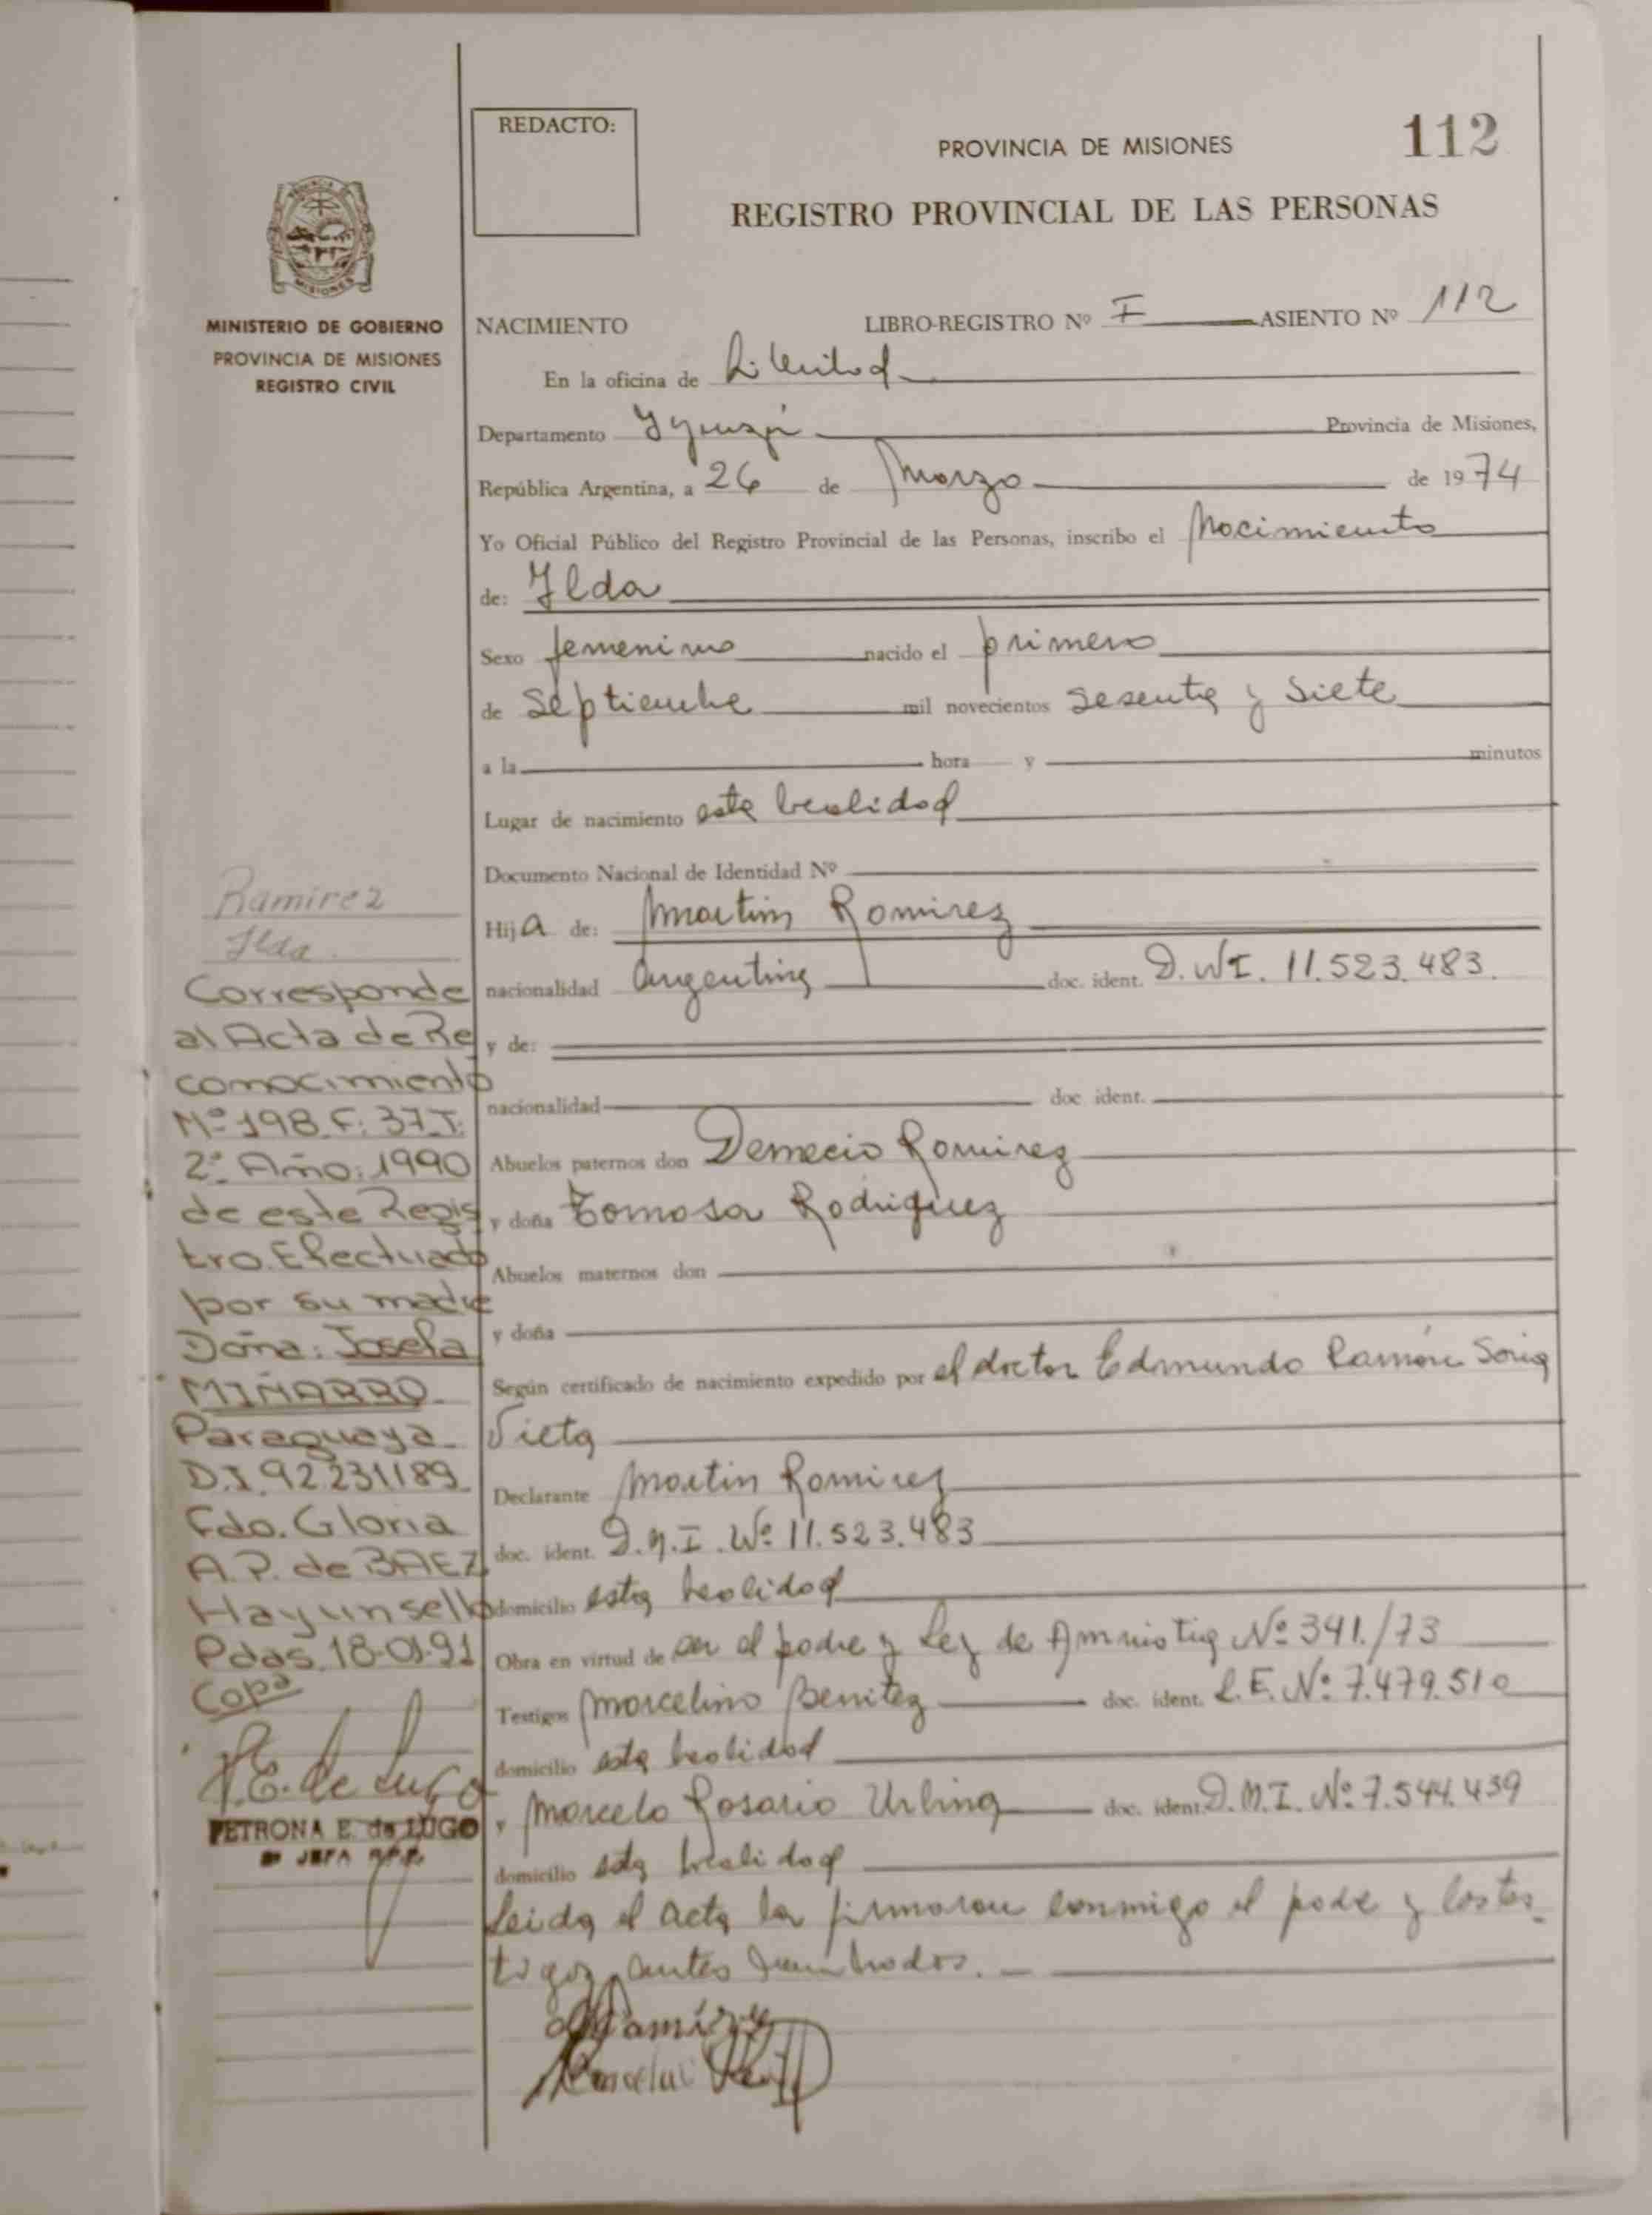 REDACTO:
PROVINCIA DE MISIONES
112
REGISTRO PROVINCIAL DE LAS PERSONAS
MINISTERIO DE GOBIERNO
PROVINCIA DE MISIONES
REGISTRO CIVIL
NACIMIENTO LIBRO-REGISTRO Nº I ASIENTO Nº 112
En la oficina de
Departamento Provincia de Misiones,
República Argentina, a 26 de Marzo de 1974
Yo Oficial Público del Registro Provincial de las Personas, inscribo el Nacimiento
de: Ilda
Sexo femenino nacido el primero
de Septiembre mil novecientos Sesenta y Siete
a la hora y minutos
Lugar de nacimiento esta localidad
Documento Nacional de Identidad Nº
Hija de: Martin Ramirez
nacionalidad Argentina doc. ident. D.N.I. 11.523.483.
y de:
nacionalidad doc. ident.
Abuelos paternos don Demecio Ramirez
y doña Tomasa Rodriguez
Abuelos maternos don
y doña
Según certificado de nacimiento expedido por el doctor Edmundo Ramón Soria
Vieta
Declarante Martin Ramirez
doc. ident. D.N.I. Nº 11.523.483
domicilio esta localidad
Obra en virtud de ser el padre y Ley de Amnistia Nº 341./73
Testigos Marcelino Benitez doc. ident. L.E. Nº 7.479.510
domicilio esta localidad
y Marcelo Rosario Urbina doc. ident. D.N.I. Nº 7.544.439
domicilio esta localidad
Leida el acta la firmaron conmigo el padre y los tes-
tigos antes nombrados.
Ramirez
Ilda.
Corresponde
al Acta de Re
conocimiento
Nº 198 F: 37 T:
2º Año: 1990
de este Regis
tro. Efectuado
por su madre
Doña: Josefa
MIÑARRO
Paraguaya
D.I. 92.231189
Fdo. Gloria
A.P. de BAEZ
Hay un sello
Pdas. 18-01-91
Copa
P.E. de Lugo
PETRONA E. de LUGO
JEFA